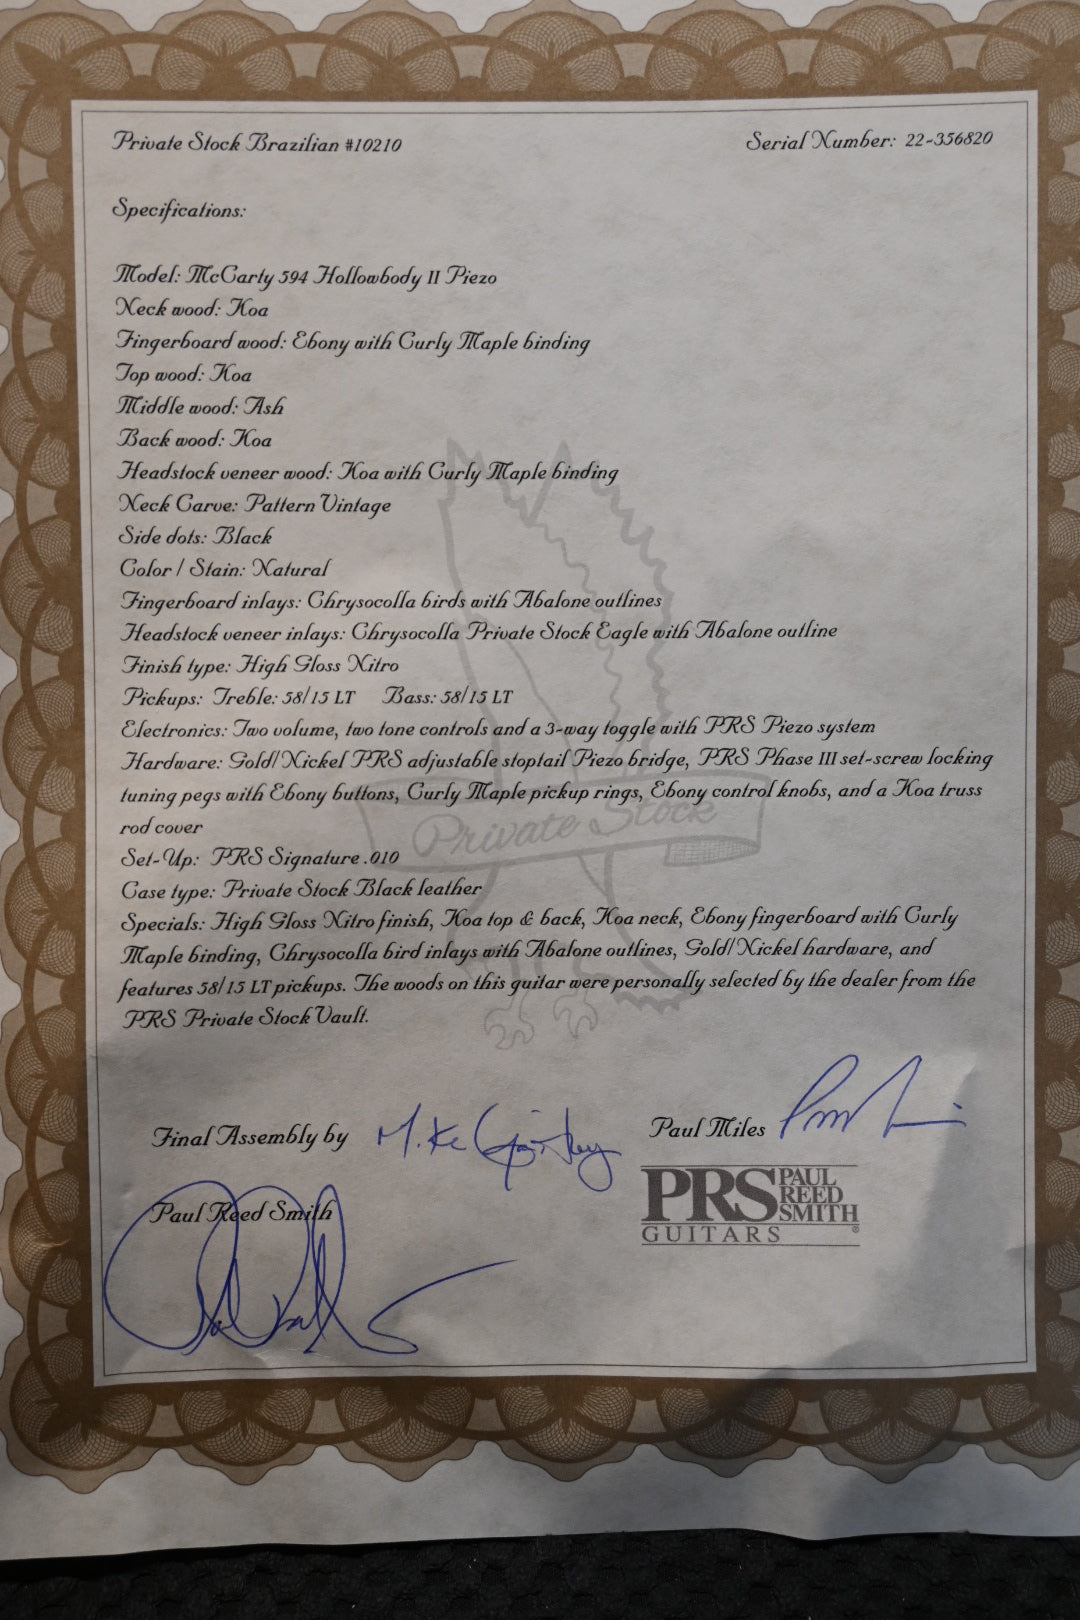 Private Stock Brazilian #10210
Serial Number: 22-356820
Specifications:
Model: McCarty 594 Hollowbody II Piezo
Neck wood: Koa
Fingerboard wood: Ebony with Curly Maple binding
Top wood: Koa
Middle wood: Ash
Back wood: Koa
Headstock veneer wood: Koa with Curly Maple binding
Neck Carve: Pattern Vintage
Side dots: Black
Color / Stain: Natural
Fingerboard inlays: Chrysocolla birds with Abalone outlines
Headstock veneer inlays: Chrysocolla Private Stock Eagle with Abalone outline
Finish type: High Gloss Nitro
Pickups: Treble: 58/15 LT Bass: 58/15 LT
Electronics: Two volume, two tone controls and a 3-way toggle with PRS Piezo system
Hardware: Gold/Nickel PRS adjustable stoptail Piezo bridge, PRS Phase III set-screw locking
tuning pegs with Ebony buttons, Curly Maple pickup rings, Ebony control knobs, and a Koa truss
rod cover
Private Stock
Set-Up: PRS Signature .010
Case type: Private Stock Black leather
Specials: High Gloss Nitro finish, Koa top & back, Koa neck, Ebony fingerboard with Curly
Maple binding, Chrysocolla bird inlays with Abalone outlines, Gold/Nickel hardware, and
features 58/15 LT pickups. The woods on this guitar were personally selected by the dealer from the
PRS Private Stock Vault.
Final Assembly by
Paul Miles
Paul Reed Smith
PRS PAUL
REED
SMITH®
GUITARS